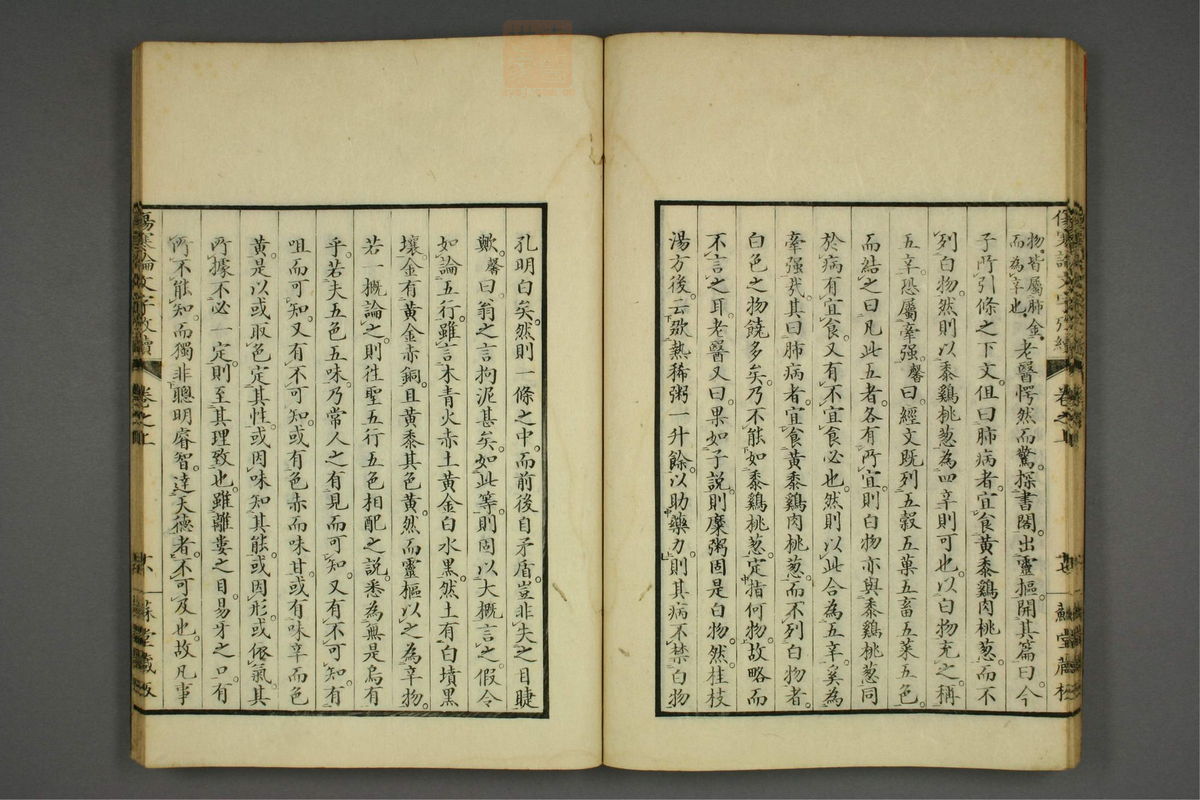 物皆屬肺金
而為辛也
老醫愕然而驚探書閣出靈樞開其篇曰今
子所引條之下文但曰肺病者宜食黃黍鷄肉桃葱而不
列白物然則以黍鷄桃葱為四辛則可也以白物充之稱
五辛恐屬牽强馨曰經文既列五穀五菓五畜五菜五色
而結之曰凡此五者各有所宜則白物亦與黍鷄桃葱同
於病有宜食又有不宜食必也然則以此合為五辛奚為
牽强哉其曰肺病者宜食黃黍鷄肉桃葱而不列白物者
白色之物饒多矣乃不能如黍鷄桃葱定指何物故略而
不言之耳老醫又曰果如子說則糜粥固是白物然桂枝
湯方後云歠熱稀粥一升餘以助藥力則其病不禁白物
孔明白矣然則一條之中而前後自矛盾豈非失之目睫
歟馨曰翁之言拘泥甚矣如此等則固以大概言之假令
如論五行雖言木青火赤土黃金白水黑然土有白墳黑
壤金有黃金赤銅且黃黍其色黃然而靈樞以之為辛物
若一概論之則徃聖五行五色相配之說悉為無是烏有
乎若夫五色五味乃常人之有見而可知又有不可知有
咀而可知又有不可知或有色赤而味甘或有味辛而色
黃是以或取色定其性或因味知其能或因形或依氣其
所據不必一定則至其理致也雖離婁之目易牙之口有
所不能知而獨非聰明睿智達天德者不可及也故凡事
傷寒論文字攷續
卷之上
蘇堂藏板